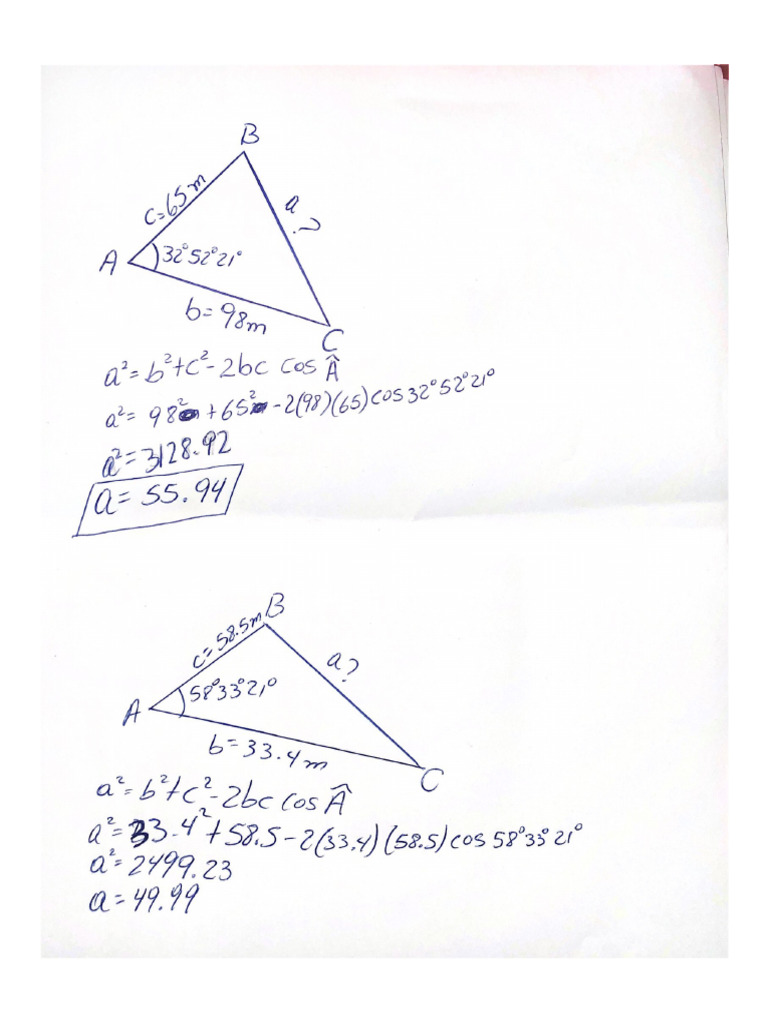 B
c=65m
a
?
A
32°52°21°
b=98m
C
a²=b²+c²-2bc cos Â
a²= 98²+65²-2(98)(65)cos 32°52°21°
a²=3128.92
a=55.94
B
c=58.5m
a?
A
58°33°21°
b=33.4m
C
a²=b²+c²-2bc cos Â
a²=33.4²+58.5-2(33.4)(58.5)cos 58°33°21°
a²=2499.23
a=49.99